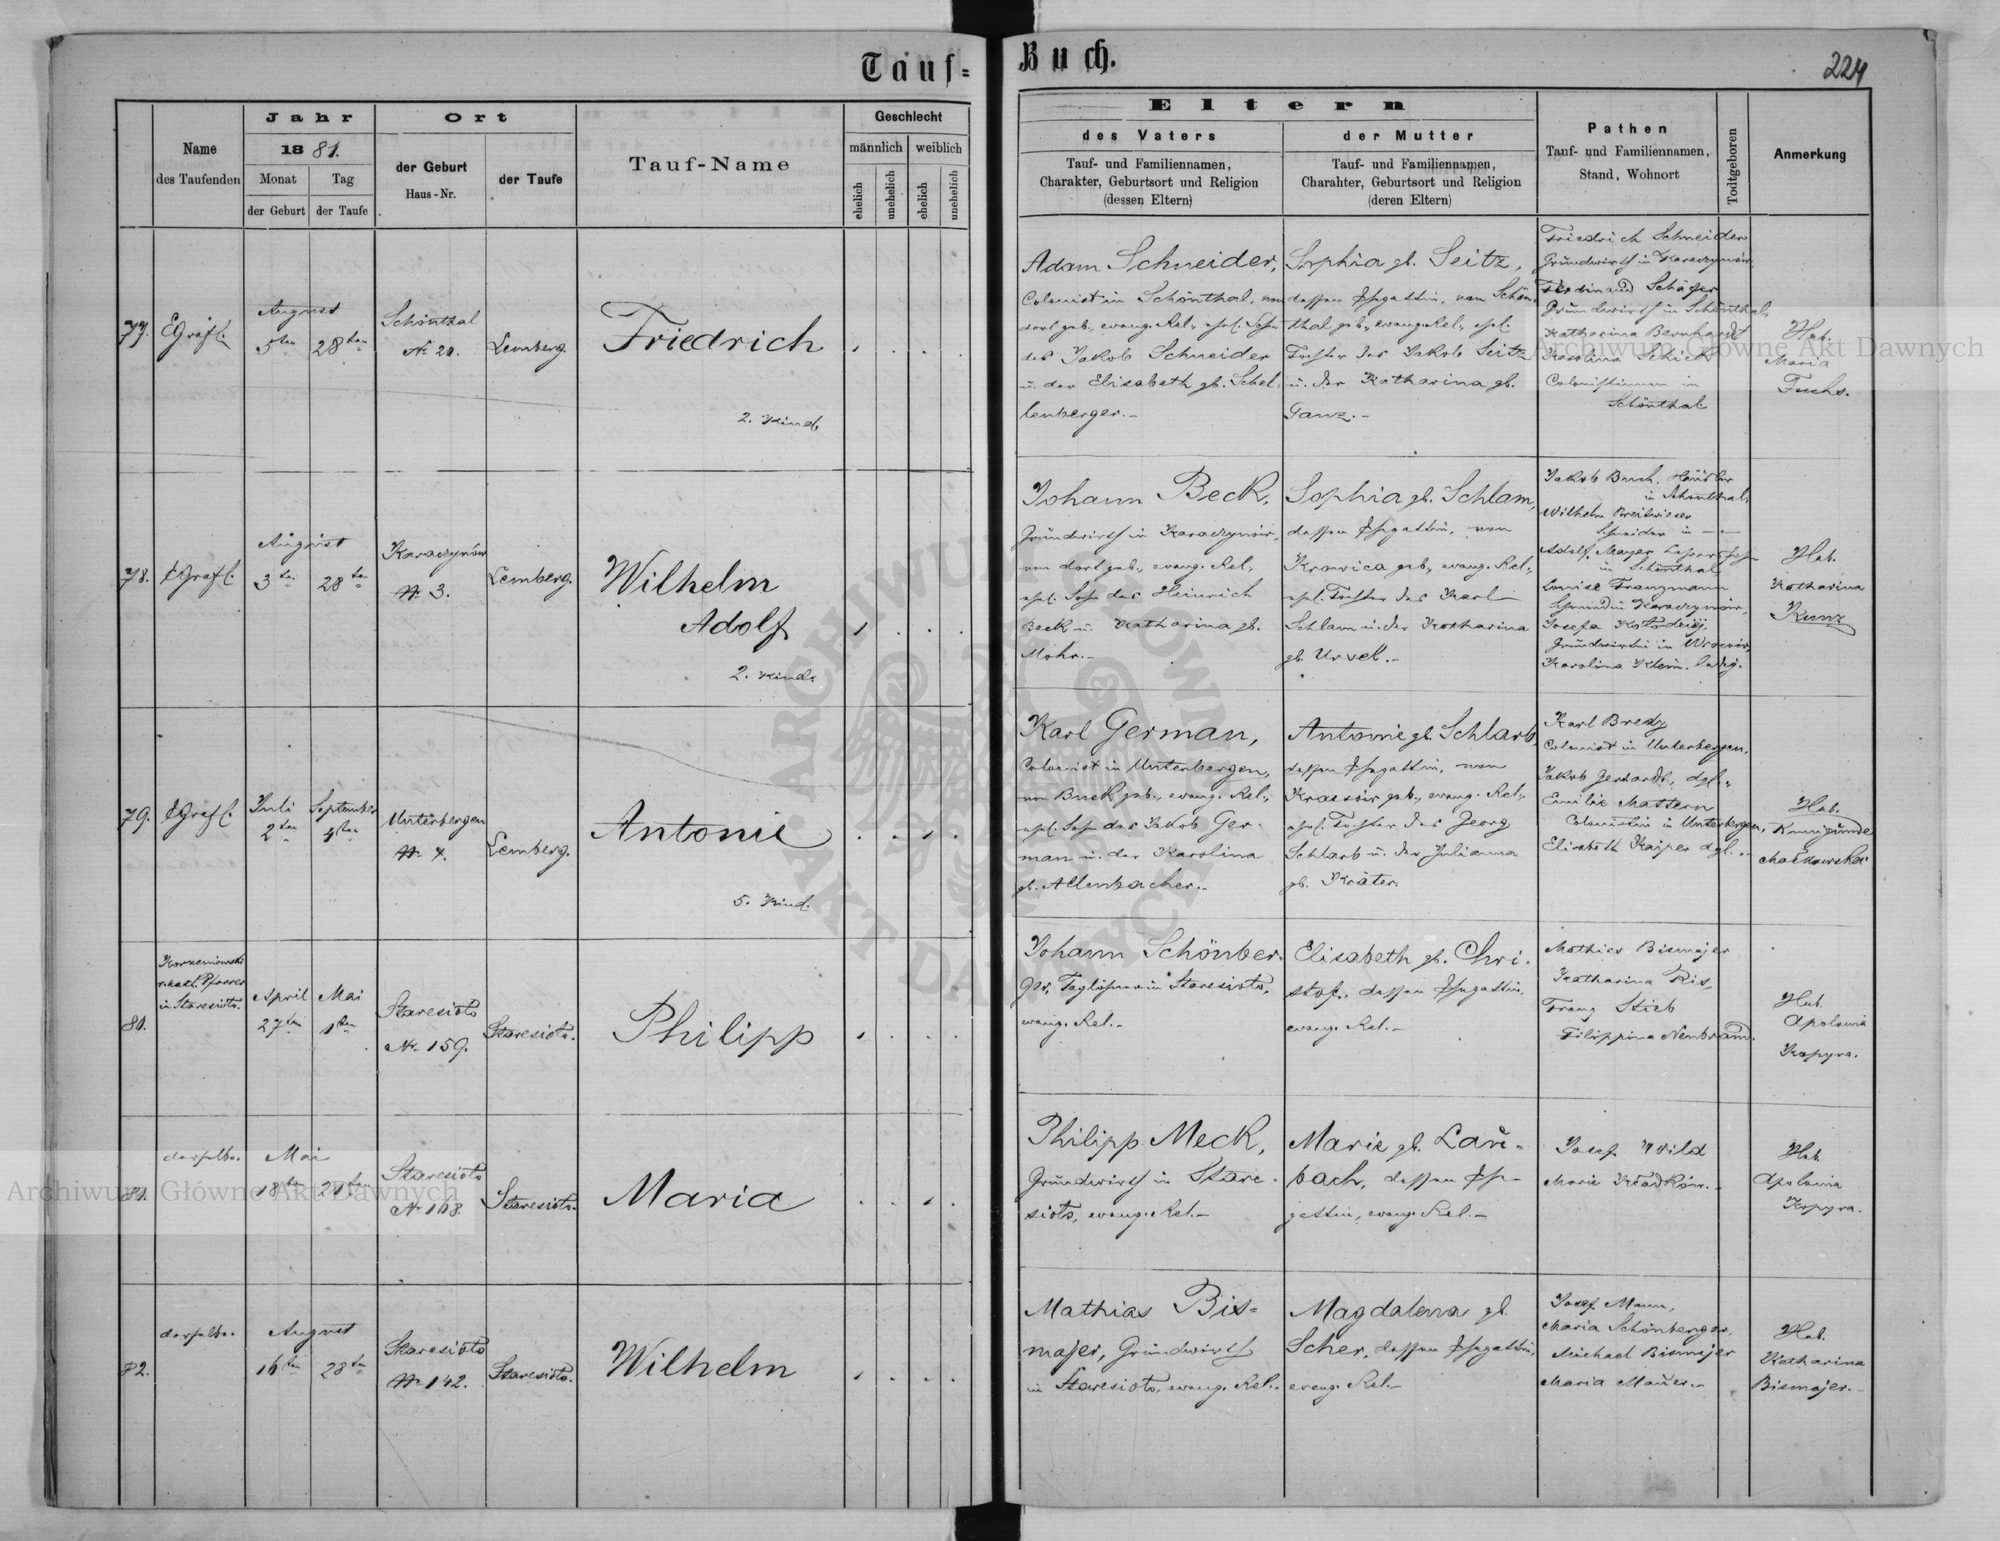 Tauf=
Buch.
224
Name
des Taufenden
Jahr
1881.
Monat
Tag
der Geburt
der Taufe
Ort
der Geburt
Haus-Nr.
der Taufe
Tauf-Name
Geschlecht
männlich
weiblich
ehelich
unehelich
ehelich
unehelich
Eltern
des Vaters
Tauf- und Familiennamen,
Charakter, Geburtsort und Religion
(dessen Eltern)
der Mutter
Tauf- und Familiennamen,
Charakter, Geburtsort und Religion
(deren Eltern)
Pathen
Tauf- und Familiennamen,
Stand, Wohnort
Todtgeboren
Anmerkung
77.
August
5ten
28ten
Schönthal
Nr. 20.
Lemberg.
Friedrich
2. Kind.
Adam Schneider,
Colonist in Schönthal, von
dort geb., evang. Rel., ehel. Sohn
des Jakob Schneider
u. der Elisabeth gb. Schel-
lenberger.-
Sophia gb. Seitz,
dessen Ehegattin, von Schön-
thal geb., evang. Rel., ehel.
Tochter des Jakob Seitz
u. der Katharina gb.
Ganz.-
Friedrich Schneider
Grundwirth in Karaczynów,
Ferdinand Schäfer
Grundwirth in Schönthal,
Katharina Bernhardt
Karolina Schick
Colonistinnen in
Schönthal
Heb.
Maria
Fuchs.
78.
August
3ten
28ten
Karaczynów
Nr. 3.
Lemberg.
Wilhelm
Adolf
2. Kind.
Johann Beck,
Grundwirth in Karaczynów,
von dort geb., evang. Rel.,
ehel. Sohn des Heinrich
Beck u. Katharina gb.
Mohr.-
Sophia gb. Schlam,
dessen Ehegattin, von
Krovica geb., evang. Rel.,
ehel. Tochter des Karl
Schlam u. der Katharina
gb. Ursel.-
Jakob Bruch, Häusler
in Schönthal,
Wilhelm Breitwieser
Schneider in
Adolf Mayer Lehrerssohn
in Schönthal
Louise Franzmann
Karaczynów,
Josefa
Grundwirthin in
Karolina Klein, ledig.
Heb.
Katharina
Kunz
79.
Juli
2ten
September
4ten
Unterbergen
Nr. 4.
Lemberg.
Antonie
5. Kind.
Karl German,
Colonist in Unterbergen,
geb., evang. Rel.,
ehel. Sohn des Jakob Ger-
man u. der Karolina
gb. Allenbacher.-
Antonie gb. Schlarb,
dessen Ehegattin, von
geb., evang. Rel.,
ehel. Tochter des Georg
Schlarb u. der Julianna
gb. Kräter.
Karl Bredy
Colonist in Unterbergen,
Jakob Gerhardt, dgl.,
Emilie Mattern
Colonistin in Unterbergen,
Elisabeth Kaiper dgl.
Heb.
Kunigunde
Maćkowska
80.
Korzeniowski
r. kath. Pfarrer
in Staresioło.
April
27ten
Mai
1ten
Staresioło
Nr. 159.
Staresioło.
Philipp
Johann Schönber-
ger, Taglöhner in Staresioło,
evang. Rel.-
Elisabeth gb. Chri-
stof, dessen Ehegattin,
evang. Rel.-
Mathias Bismajer
Katharina Ris,
Franz Stieb
Filippina Neubrand.
Heb.
Apolonia
Kopyra.
81.
derselbe.
Mai
18ten
21ten
Staresioło
Nr. 168.
Staresioło.
Maria
Philipp Meck,
Grundwirth in Stare-
sioło, evang. Rel.-
Marie gb. Lau-
bach, dessen Ehe-
gattin, evang. Rel.-
Josef Wild
Heb.
Apolonia
Kopyra.
82.
derselbe.
August
16ten
28ten
Staresioło
Nr. 142.
Staresioło.
Wilhelm
Mathias Bis-
majer, Grundwirth
in Staresioło, evang. Rel.-
Magdalena gb.
Scher, dessen Ehegattin,
evang. Rel.-
Josef Mann,
Maria Schönberger,
Michael Bismajer
Maria Mauer.-
Heb.
Katharina
Bismajer.-
Archiwum Główne Akt Dawnych
Archiwum Główne Akt Dawnych
ARCHIWUM GŁÓWNE AKT DAWNYCH